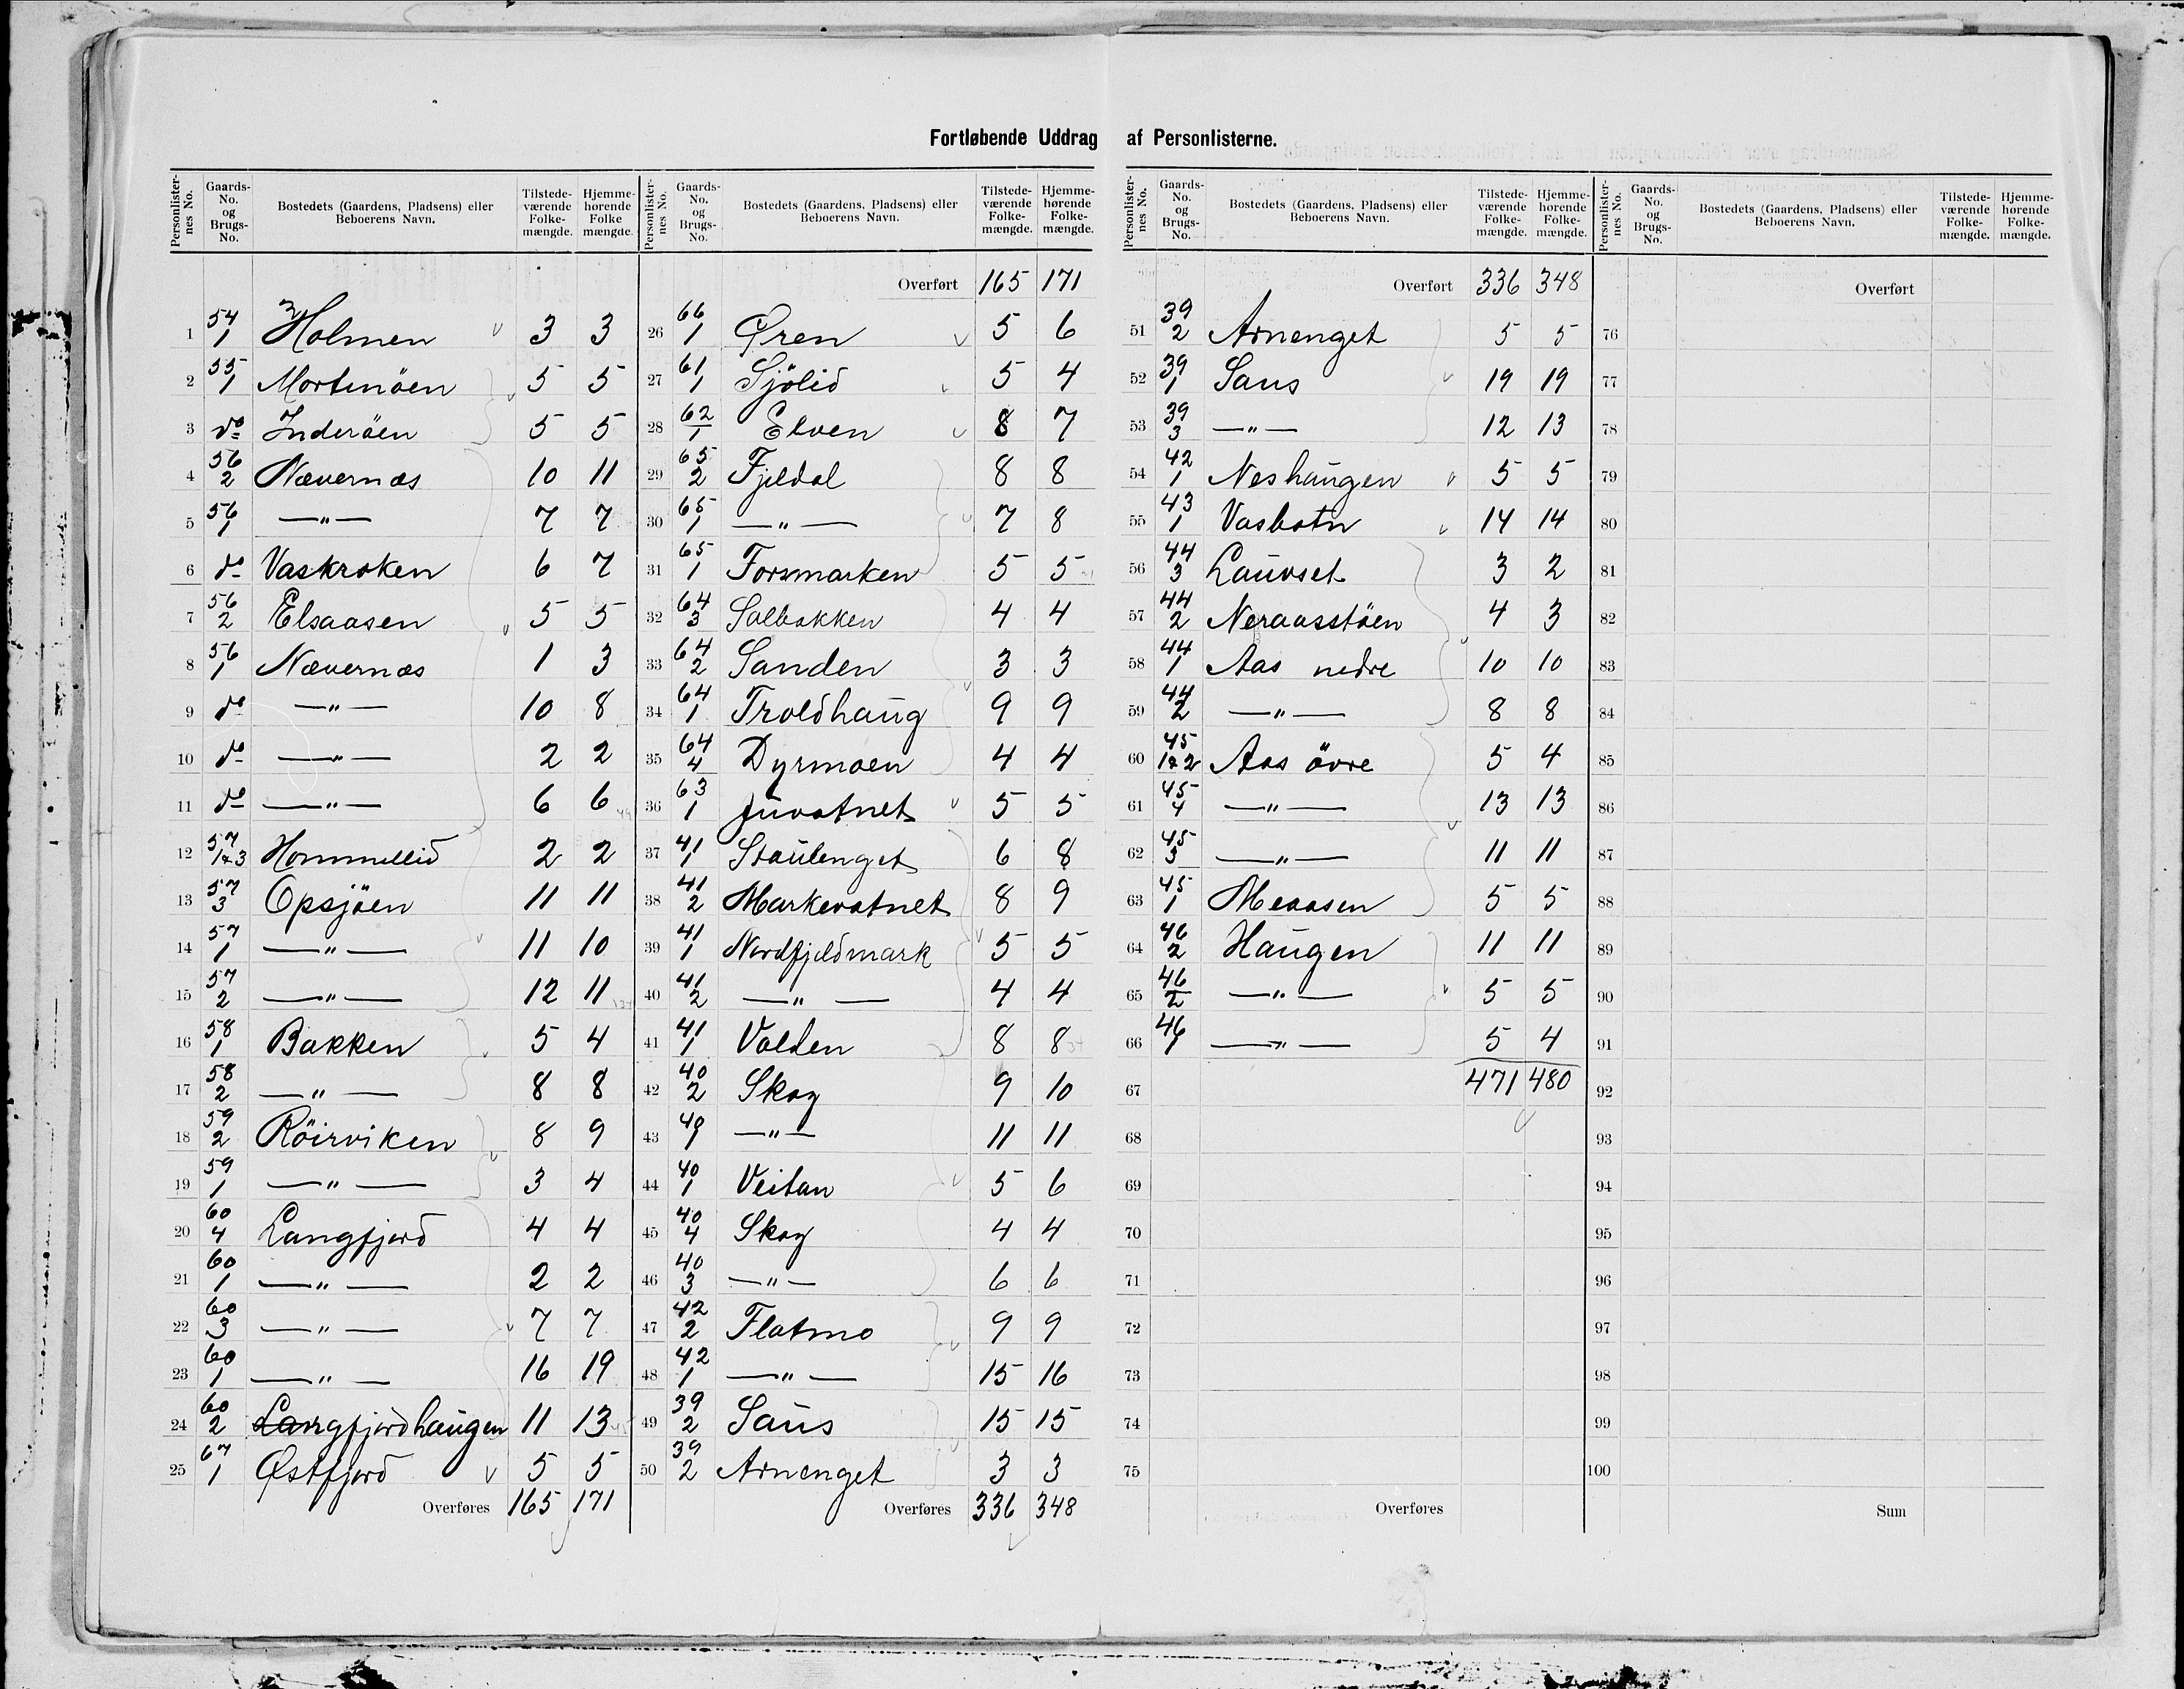 Fortløbende Uddrag af Personlisterne.
Personlister-nes No. Gaards-No. og Brugs-No. Bostedets (Gaardens, Pladsens) eller Beboerens Navn. Tilstede-værende Folke-mængde. Hjemme-hørende Folke mængde.
1 54/1 Holmen 3 3
2 55/1 Mortenöen 5 5
3 do Inderöen 5 5
4 56/2 Nævernæs 10 11
5 56/1 —"— 7 7
6 do Vaskroken 6 7
7 56/2 Elsaasen 5 5
8 56/1 Nævernæs 1 3
9 do —"— 10 8
10 do —"— 2 2
11 do —"— 6 6
12 57/1&3 Hommellid 2 2
13 57/3 Opsjöen 11 11
14 57/1 —"— 11 10
15 57/2 —"— 12 11
16 58/1 Bakken 5 4
17 58/2 —"— 8 8
18 59/2 Röirviken 8 9
19 59/1 —"— 3 4
20 60/4 Langfjord 4 4
21 60/1 —"— 2 2
22 60/3 —"— 7 7
23 60/1 —"— 16 19
24 60/2 Langfjordhaugen 11 13
25 67/1 Østfjord 5 5
Overføres 165 171
Personlister-nes No. Gaards-No. og Brugs-No. Bostedets (Gaardens, Pladsens) eller Beboerens Navn. Tilstede-værende Folke-mængde. Hjemme-hørende Folke-mængde.
Overført 165 171
26 66/1 Øren 5 6
27 61/1 Sjölid 5 4
28 62/1 Elven 8 7
29 65/2 Fjeldal 8 8
30 65/1 —"— 7 8
31 65/1 Forsmarken 5 5
32 64/3 Solbakken 4 4
33 64/2 Sanden 3 3
34 64/1 Troldhaug 9 9
35 64/4 Dyrmoen 4 4
36 63/1 Juvatnet 5 5
37 41/1 Staulenget 6 8
38 41/2 Markevatnet 8 9
39 41/1 Nordfjeldmark 5 5
40 41/2 —"— 4 4
41 41/1 Volden 8 8
42 40/2 Skog 9 10
43 40/1 —"— 11 11
44 40/1 Veitan 5 6
45 40/4 Skog 4 4
46 40/3 —"— 6 6
47 42/2 Flatmo 9 9
48 42/1 —"— 15 16
49 39/2 Saus 15 15
50 39/2 Arnenget 3 3
Overføres 336 348
Personlister-nes No. Gaards-No. og Brugs-No. Bostedets (Gaardens, Pladsens) eller Beboerens Navn. Tilstede-værende Folke-mængde. Hjemme-hørende Folke-mængde.
Overført 336 348
51 39/2 Arnenget 5 5
52 39/1 Saus 19 19
53 39/3 —"— 12 13
54 42/1 Neshaugen 5 5
55 43/1 Vasbotn 14 14
56 44/3 Lauvset 3 2
57 44/2 Neraasstöen 4 3
58 44/1 Aas nedre 10 10
59 44/2 —"— 8 8
60 45/1&2 Aas övre 5 4
61 45/4 —"— 13 13
62 45/3 —"— 11 11
63 45/1 Meaasen 5 5
64 46/2 Haugen 11 11
65 46/2 —"— 5 5
66 46/1 —"— 5 4
67 471 480
68
69
70
71
72
73
74
75
Overføres
Personlister-nes No. Gaards-No. og Brugs-No. Bostedets (Gaardens, Pladsens) eller Beboerens Navn. Tilstede-værende Folke-mængde. Hjemme-hørende Folke-mængde.
Overført
76
77
78
79
80
81
82
83
84
85
86
87
88
89
90
91
92
93
94
95
96
97
98
99
100
Sum